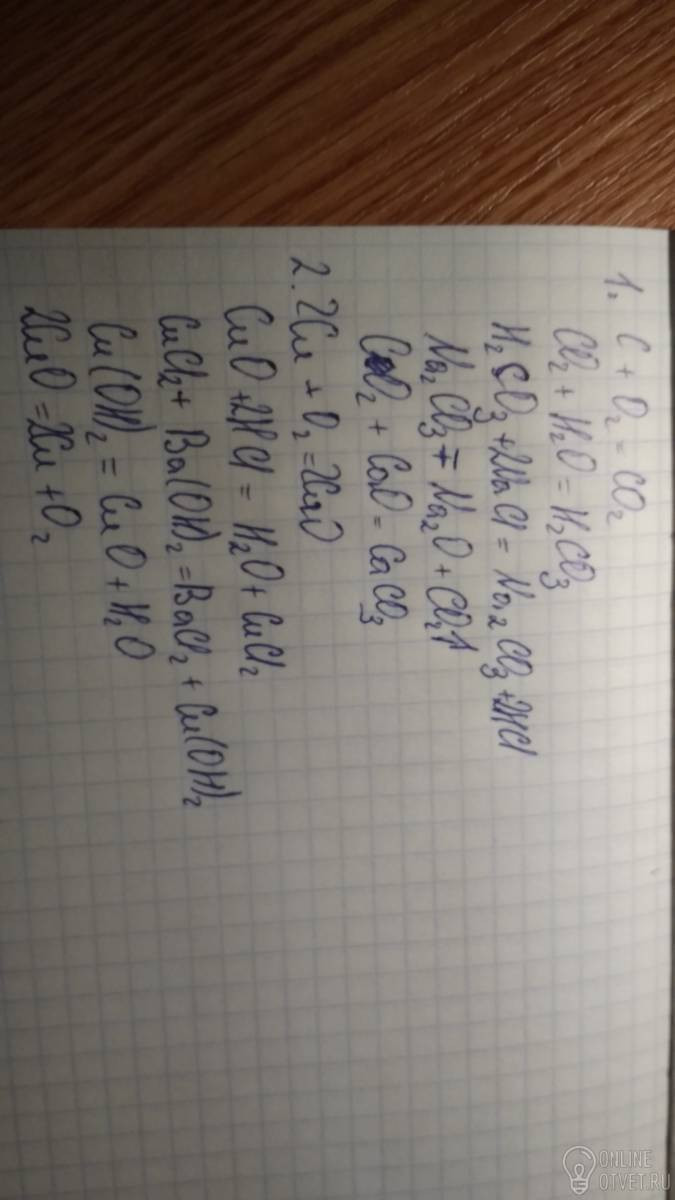 1. C + O₂ = CO₂
CO₂ + H₂O = H₂CO₃
H₂CO₃ + 2NaCl = Na₂CO₃ + 2HCl
Na₂CO₃ = Na₂O + CO₂↑
CO₂ + CaO = CaCO₃
2. 2Cu + O₂ = 2CuO
CuO + 2HCl = H₂O + CuCl₂
CuCl₂ + Ba(OH)₂ = BaCl₂ + Cu(OH)₂
Cu(OH)₂ = CuO + H₂O
2CuO = 2Cu + O₂
ONLINE
OTVET.RU